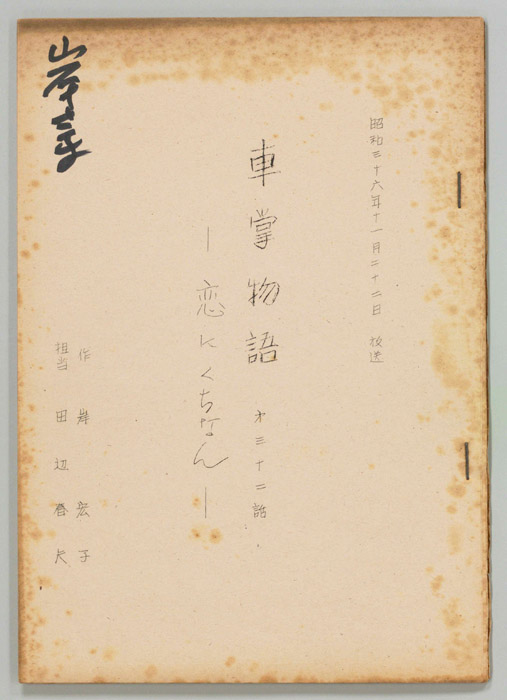 昭和三十六年十一月二十二日 放送
車掌物語 才三十二話
―恋にくちなん―
作 岸宏子
担当 田辺